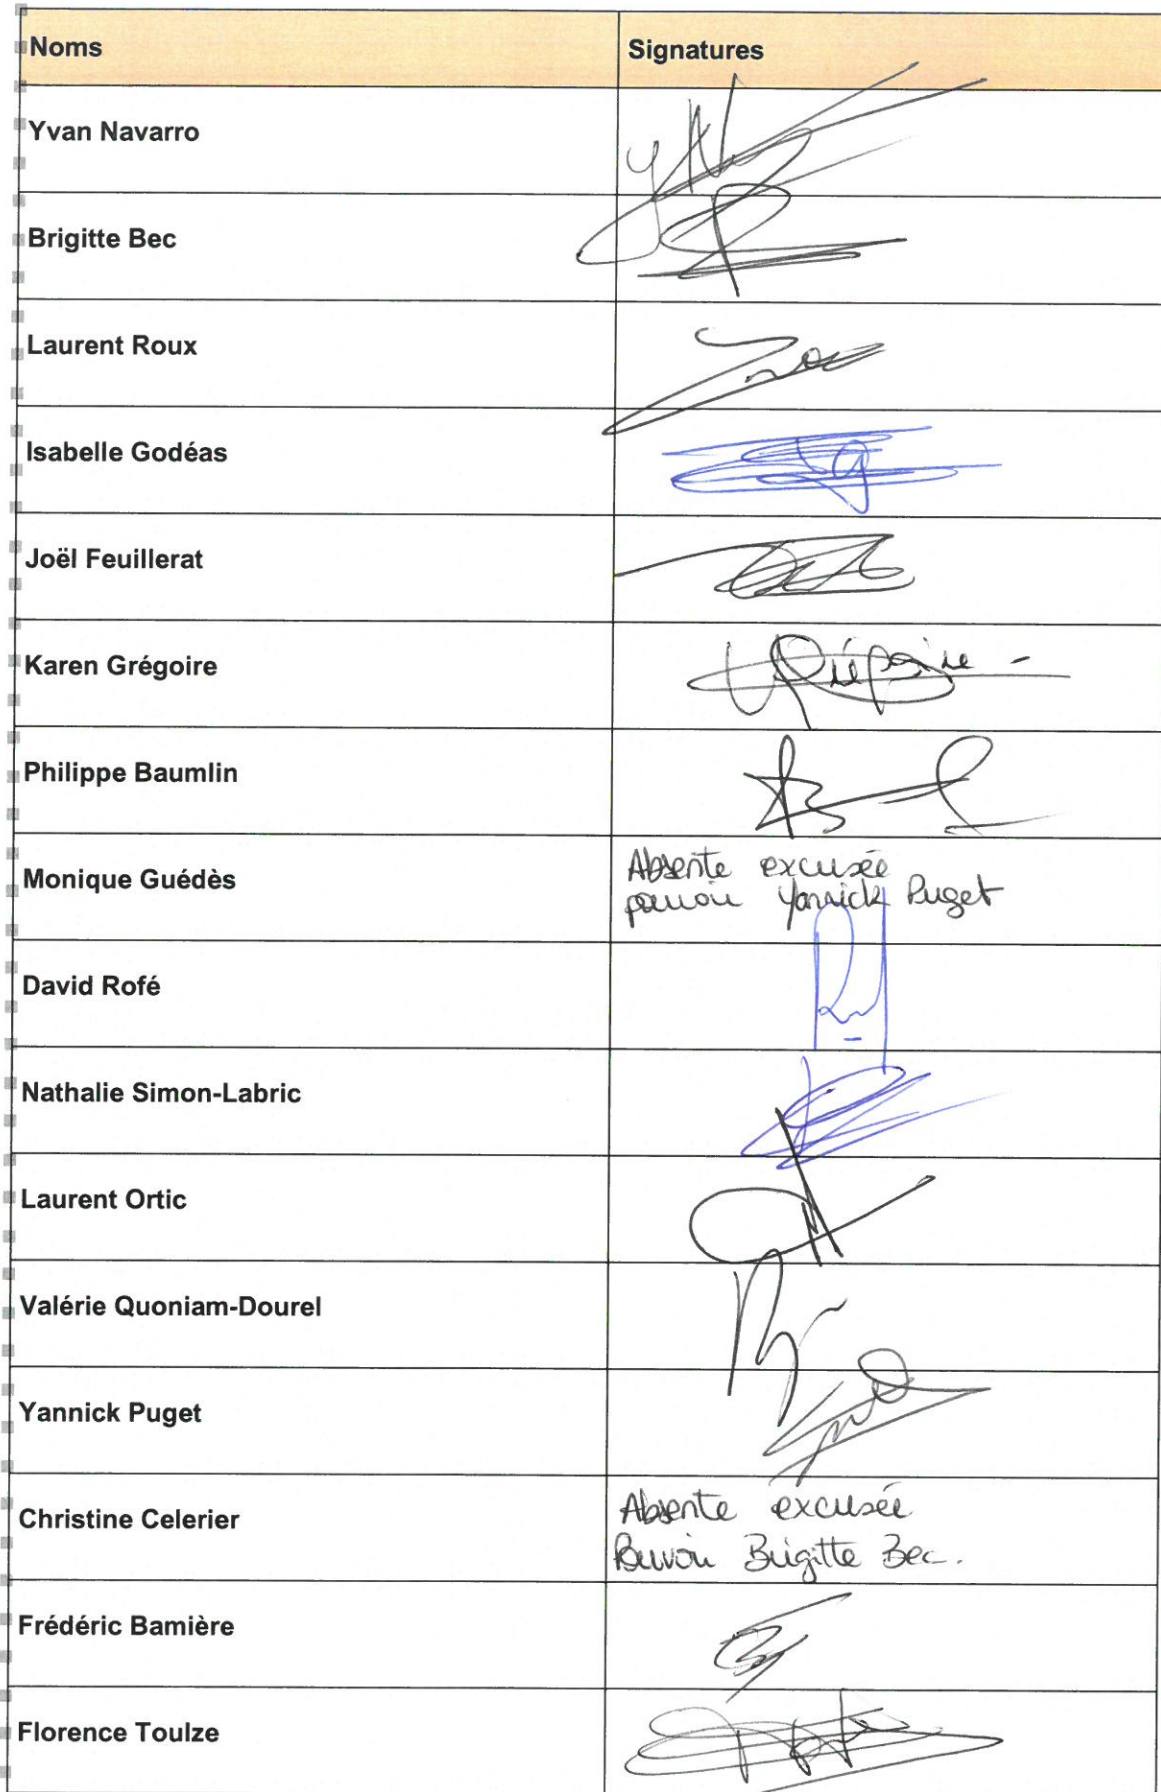 Noms Signatures
Yvan Navarro
Brigitte Bec
Laurent Roux
Isabelle Godéas
Joël Feuillerat
Karen Grégoire
Philippe Baumlin
Monique Guédès
Absente excusée
pouvoir Yannick Puget
David Rofé
Nathalie Simon-Labric
Laurent Ortic
Valérie Quoniam-Dourel
Yannick Puget
Christine Celerier
Absente excusée
Pouvoir Brigitte Bec.
Frédéric Bamière
Florence Toulze